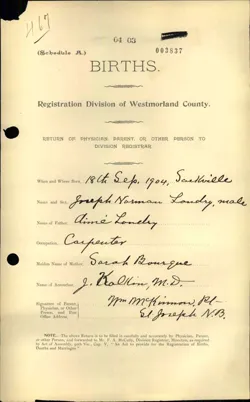 467
64 03
(Schedule A.)
003837
BIRTHS.
Registration Division of Westmorland County.
RETURN OF PHYSICIAN, PARENT, OR OTHER PERSON TO
DIVISION REGISTRAR.
When and Where Born, 18th Sep. 1904, Sackville
Name and Sex, Joseph Norman Londry, male
Name of Father, Aimé Londry
Occupation, Carpenter
Maiden Name of Mother, Sarah Bourque
Name of Accoucheur, J. Kalkin, M.D.
Signature of Parent,
Physician, or Other
Person, and Post
Office Address
Wm McKinnon, Pt
St Joseph N.B.
NOTE.—The above Return is to be filled in carefully and accurately by Physician, Parent,
or other Person, and forwarded to Mr. F. A. McCully, Division Registrar, Moncton, as required
by Act of Assembly, 50th Vic., Cap. V, "An Act to provide for the Registration of Births,
Deaths and Marriages."